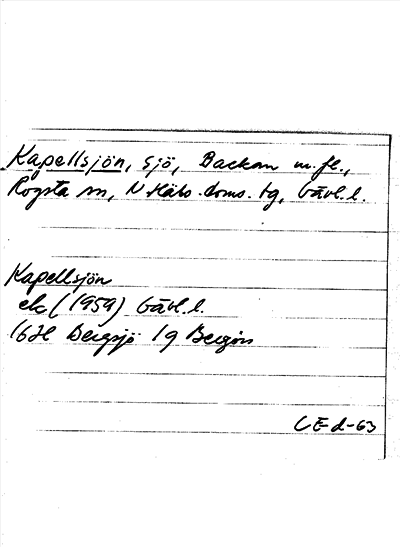 Kapellsjön, sjö, Backan m.fl.,
Rogsta sn, N Häls. doms. tg, Gävl.l.
Kapellsjön
ek (1959) Gävl.l.
16H Bergsjö 1g
CEd-63